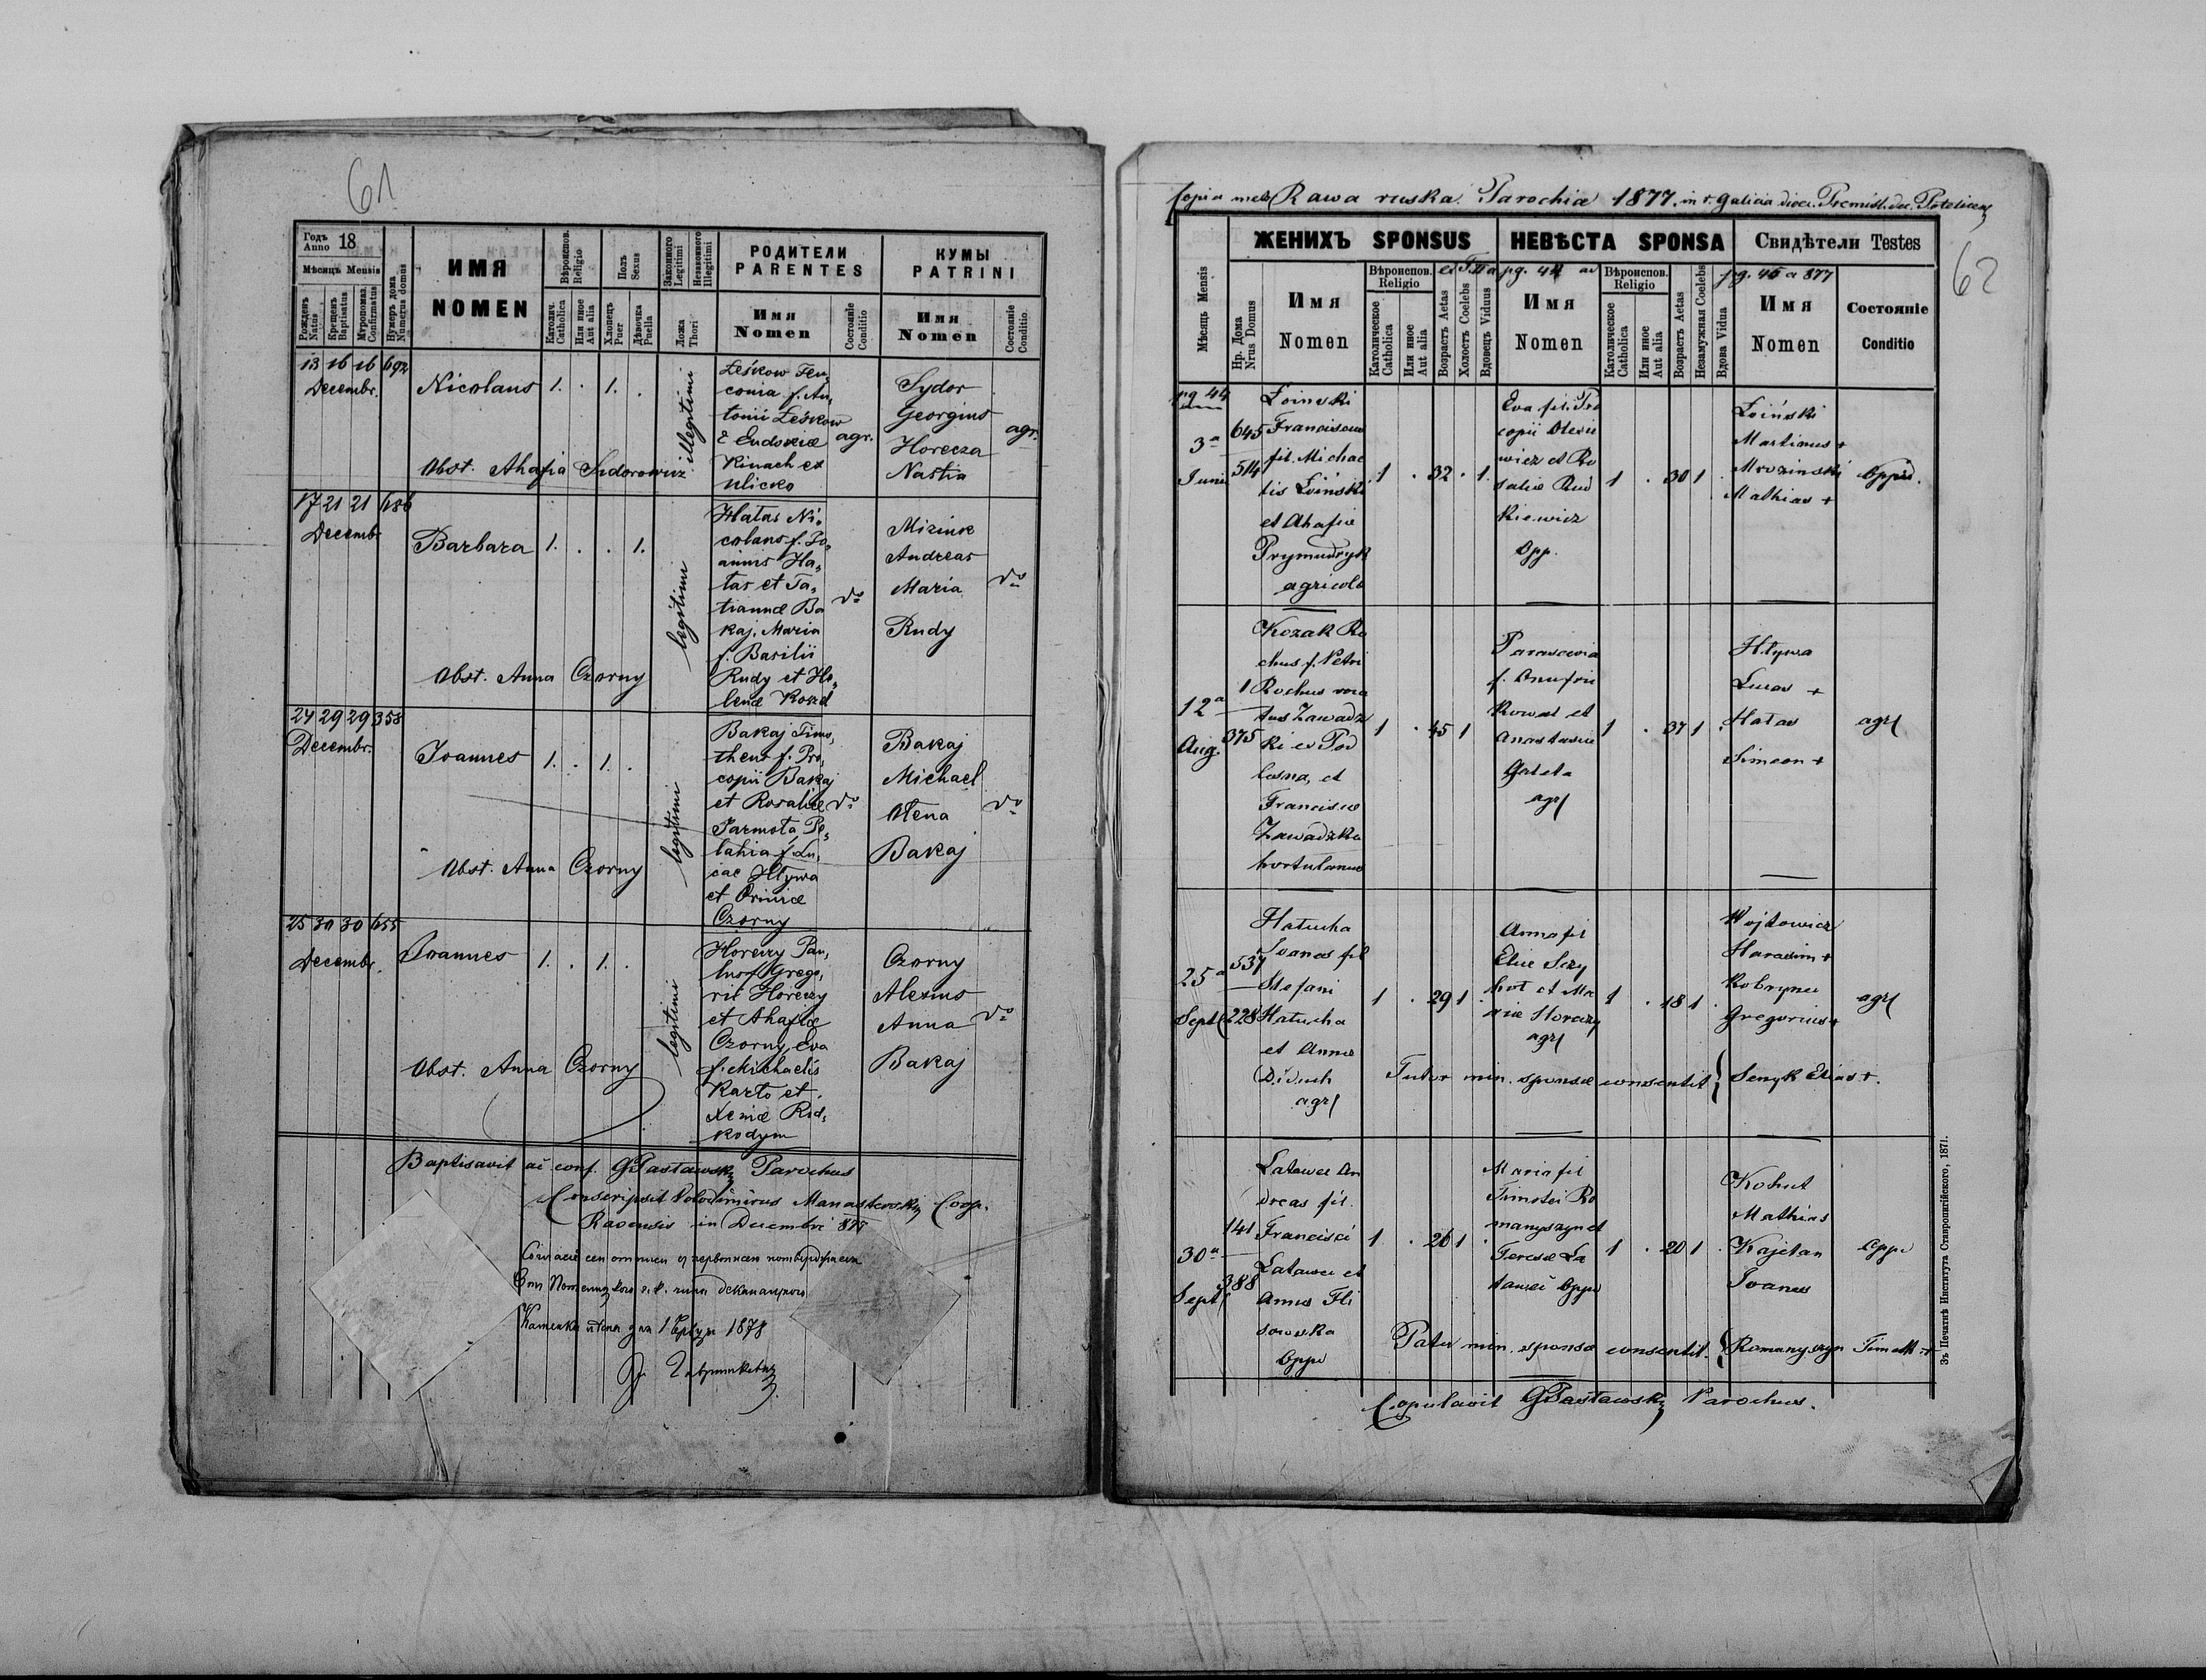 61
Годъ Anno 18
Мѣсяцъ Mensis
Рожденъ Natus
Крещенъ Baptisatus
Мѵропомаз. Confirmatus
Нумеръ дома Numerus domus
ИМЯ
NOMEN
Вѣроиспов. Religio
Католич. Catholica
Или иное Aut alia
Полъ Sexus
Хлопецъ Puer
Дѣвочка Puella
Законного Legitimi
Незаконного Illegitimi
Ложа Thori
РОДИТЕЛИ
PARENTES
Имя
Nomen
Состоянiе Conditio
КУМЫ
PATRINI
Имя
Nomen
Состоянiе Conditio.
13 16 16 692
Decembr.
Nicolaus
1. . 1. .
illegitimi
Leśkow Fen,
conia f. An,
tonii Leśkow
& Eudoxiæ
Kinach ex
Ulicko
agr.
Sydor
Georgius
Horecza
Nastia
agr.
Obst. Ahafia Sydorowicz
17 21 21 686
Decembr
Barbara
1. . . 1.
legitimi
Hatas Ni,
colaus f. Jo,
annis Ha,
tas et Ta,
tiannæ Ba
kaj, Maria
f. Basilii
Rudy et He,
lenæ
do
Miziuk
Andreas
Maria
Rudy
do
Obst. Anna Czorny
24 29 29 358
Decembr.
Joannes
1. . 1. .
legitimi
Bakaj Timo,
theus f. Pro,
copii Bakaj
et Rosaliæ
Jarmoła Pe,
lahia f. Lu,
cae Hływa
et Irinæ
Czorny
do
Bakaj
Michael
Ołena
Bakaj
do
Obst. Anna Czorny
25 30 30 655
Decembr.
Joannes
1. . 1. .
legitimi
Horeczy Pau,
lus f. Grego,
rii Horeczy
et Ahafiæ
Czorny, Eva
f. Michaelis
Karto et
Xeniæ Rod,
kodym
Czorny
Alexius
Anna
Bakaj
do
Obst. Anna Czorny
Baptisavit ac conf. GPasławsky Parochus
Conscripsit Volodimirus Manasterski Coop.
Ravensis in Decembri 877
1878
Copia metr. Rawa ruska Parochiæ 1877. in r. Galicia dioec. Premisl. dec. Potelicens
62
Мѣсяць Mensis
ЖЕНИХЪ SPONSUS
Нр. Дома Nrus Domus
Имя
Nomen
Вѣроиспов. Religio
Католическое Catholica
Или иное Aut alia
Возрастъ Aetas
Холостъ Coelebs
Вдовецъ Viduus
НЕВѢСТА SPONSA
pg. 44
Имя
Nomen
Вѣроиспов. Religio
Католическое Catholica
Или иное Aut alia
Возрастъ Aetas
Незамужная Coelebs
Вдова Vidua
Свидѣтели Testes
pg. 45 a 877
Имя
Nomen
Состоянiе
Conditio
pg 44
3a
Juni
645
514
Łoinski
Franciscus
fil. Michae
lis Łoiński
et Ahafia
Prymudryk
agricola
1 . 32 . 1
Eva fil. Pro
copii Olexie
wicz et Ro
salie Rud
kiewicz
opp.
1 . 30 1 .
Łoiński
Martinus +
Mrozinski
Mathias +
oppid.
12a
Aug.
1
375
Kozak Ro
chus f. Petri
Rochus voca
tus Zawadz
ki ex Pod
lesna, et
Francisca
Zawadzka
hortulanus
1 . 45 1
Parascevia
f. Onufrii
Kowal et
Anastasia
Galela
agr
1 . 37 1 .
Hływa
Lucas +
Hatas
Simeon +
agr
25a
Sept
537
228
Hatucha
Joanes fil
Stefani
Hatucha
et Anna
Diduch
agr
1 . 29 1
Anna fil
Eliæ Sczy
hot et Ma
riæ Horeczy
agr
1 . 18 1 .
Wojtowicz
Harasim +
Kobrynec
Gregorius +
agr
Tutor min. sponsæ consentit } Senyk Elias +.
30a
Sept
141
388
Latawec An
dreas fil.
Francisci
Latawec et
Anna Fli
sowska
oppi
1 . 26 1 .
Maria fil
Timotei Ro
manyszyn et
Teresæ La
tawei oppi
1 . 20 1 .
Kohut
Mathias
Kajetan
Joanes
oppi
Pater min. sponsæ consentit. { Romanyszyn Timoth +
Copulavit GPasławsky Parochus.
Зъ Печатнѣ Института Ставропигійского, 1871.